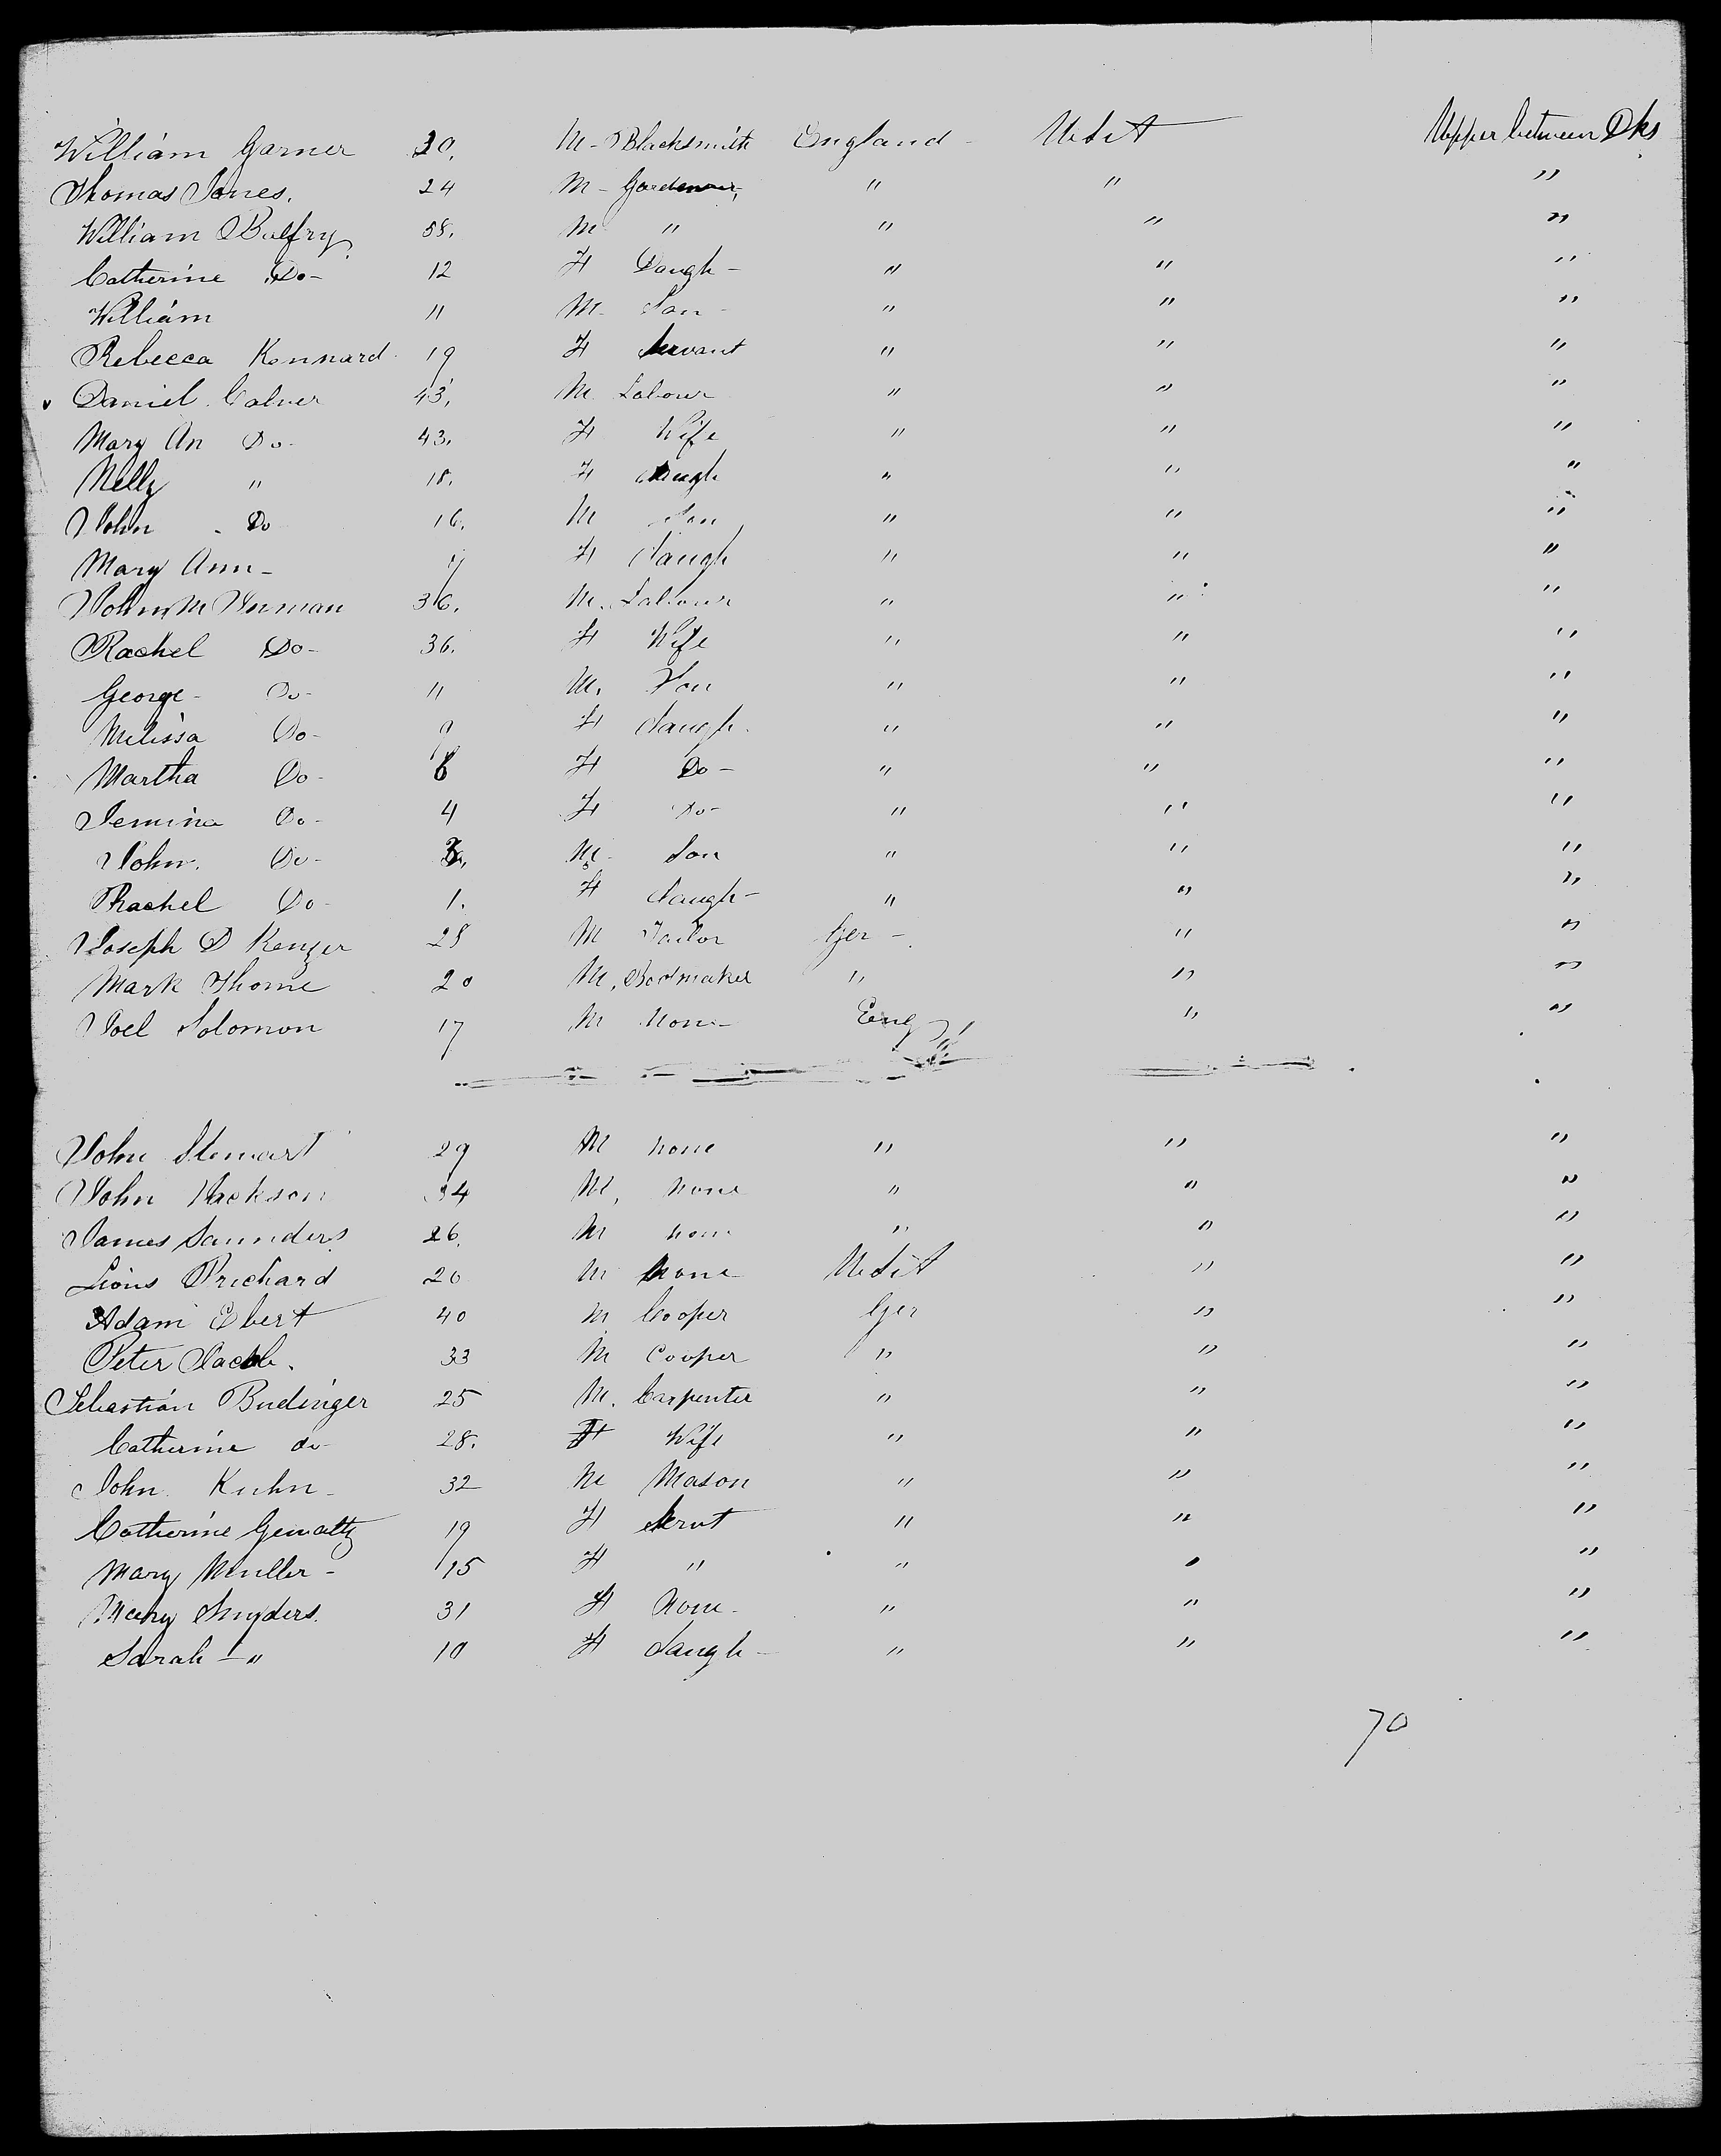 William Garner 30. M - Blacksmith England - U St A Upper between Dks
Thomas Jones. 24 M - Gardener, " " "
William Bulfry 58. M " " " "
Catherine Do - 12 F Daugh - " " "
William 11 M - Son - " " "
Rebecca Kennard 19 F Servant " " "
Daniel Calver 43, M Labour " " "
Mary An Do - 43. F Wife " " "
Nelly " 18. F daugh " " "
John - Do 16. M Son " " "
Mary Ann - F daugh " " "
John M 36. M. Labour " " "
Rachel Do - 36. F Wife " " "
George - Do - 11 M. Son " " "
Melissa Do - 9 F daugh. " " "
Martha Do - F Do - " " "
Jemima Do - 4 F Do - " " "
John. Do - 3, M - Son " " "
Rachel Do - 1. F daugh - " " "
Joseph D Kenzer 28 M Tailor Ger - " "
Mark Thorne 20 M, Bootmaker " " "
Joel Solomon 17 M None - Eng " "
John Stewart 29 M none " " "
John Jackson 34 M, none " " "
James Saunders 26. M none " " "
Lions Prichard 20 M none U St A " "
Adam Ebert 40 M Cooper Ger " "
Peter Jacob. 33 M Cooper " " "
Sebastian Budinger 25 M. Carpenter " " "
Catherine do - 28. F Wife " " "
John Kuhn - 32 M Mason " " "
Catherine Gewaltz 19 F Servt " " "
Mary Muller - 15 F " " " "
Mary Snyders. 31 F None - " " "
Sarah - " 10 F daugh - " " "
70